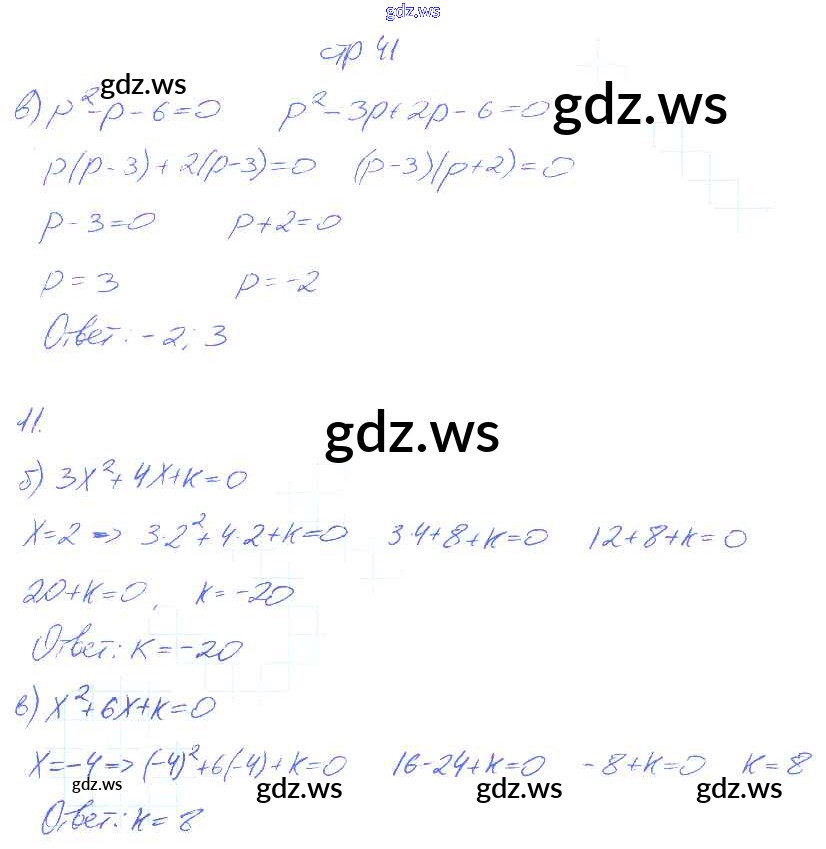 gdz.ws
стр 41
в) p² - p - 6 = 0   p² - 3p + 2p - 6 = 0
gdz.ws
gdz.ws
p(p - 3) + 2(p - 3) = 0   (p - 3)(p + 2) = 0
p - 3 = 0   p + 2 = 0
p = 3   p = -2
Ответ: -2; 3
11.
gdz.ws
б) 3x² + 4x + k = 0
x = 2 => 3·2² + 4·2 + k = 0   3·4 + 8 + k = 0   12 + 8 + k = 0
20 + k = 0,   k = -20
Ответ: k = -20
в) x² + 6x + k = 0
x = -4 => (-4)² + 6(-4) + k = 0   16 - 24 + k = 0   -8 + k = 0   k = 8
gdz.ws gdz.ws gdz.ws gdz.ws
Ответ: k = 8